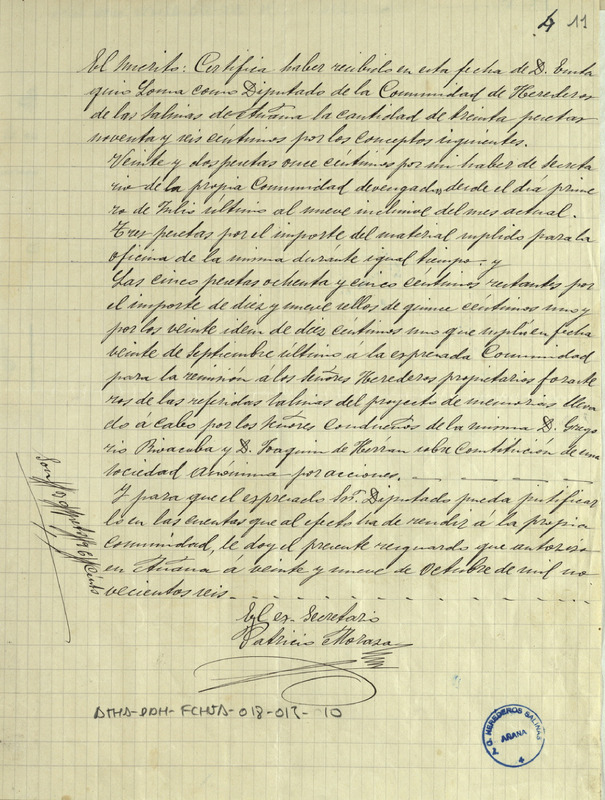 4 11
El Infrito: Certifica haber recibido en esta fecha de D. Eusta
quio Loma como Diputado de la Comunidad de Herederos
de las Salinas de Añana la cantidad de treinta pesetas
noventa y seis céntimos por los conceptos siguientes.
Veinte y dos pesetas once céntimos por mi haber de Secreta
rio de la propia Comunidad devengados desde el día prime
ro de Julio último al nueve inclusive del mes actual.
Tres pesetas por el importe del material suplido para la
oficina de la misma durante igual tiempo. y
Las cinco pesetas ochenta y cinco céntimos restantes por
el importe de diez y nueve sellos de quince céntimos uno y
por los veinte idem de diez céntimos uno que suplí en fecha
veinte de Septiembre último a la expresada Comunidad
para la remisión á los Señores Herederos propietarios foraste
ros de las referidas Salinas del proyecto de memorias lleva
do á cabo por los Señores Condueños de la misma D. Grego
rio Bivacuba y D. Joaquin de Herran sobre Constitución de una
Sociedad Anónima por acciones.
Y para que el expresado Sr. Diputado pueda justificar
lo en las cuentas que al efecto ha de rendir á la propia
Comunidad, le doy el presente resguardo que autorizo
en Añana a veinte y nueve de Octubre de mil no
vecientos seis.
El ex-Secretario
Patricio Moraza
Son 30 pesetas 96 cénts
ATHA-DDH-FCHSA-018-013-10
C. HEREDEROS SALINAS
AÑANA